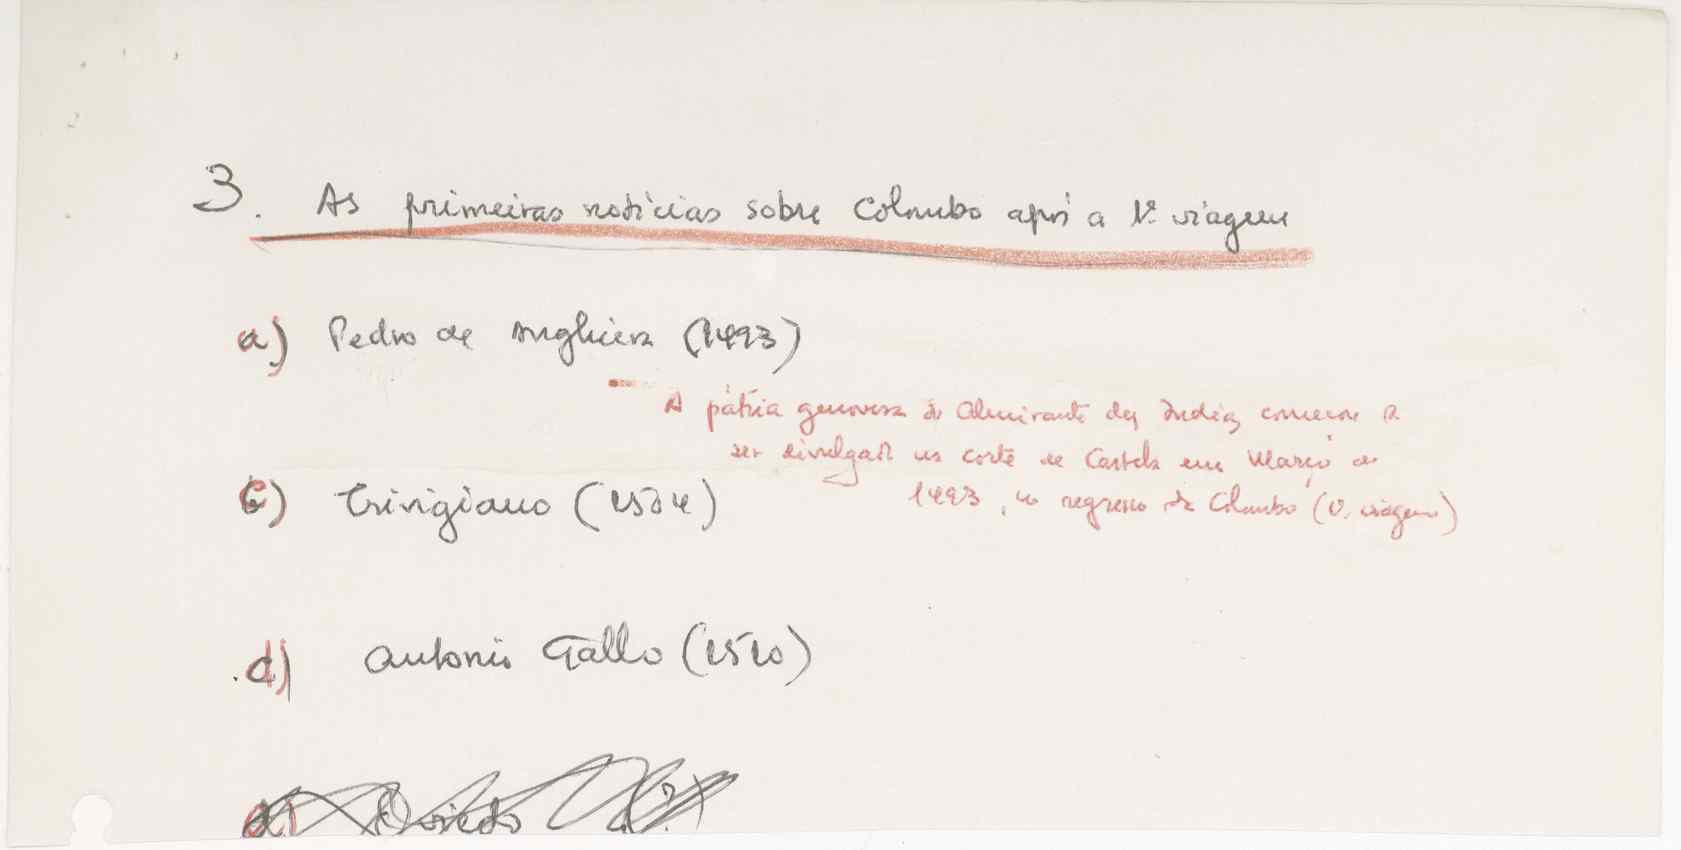 3. As primeiras notícias sobre Colombo após a 1ª viagem
a) Pedro de Anghiera (1493)
A pátria genovesa do Almirante das Índias começou a
ser divulgada na corte de Castela em Março de
1493, no regresso de Colombo (1ª viagem)
c) Trivigiano (1504)
d) Antonio Gallo (1510)
Oviedo (?)